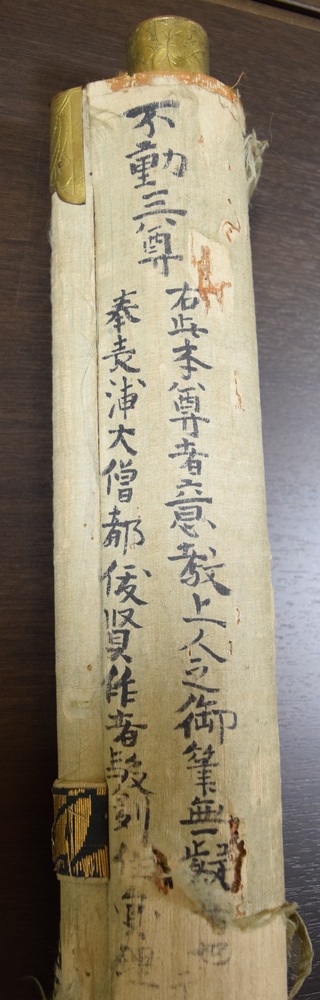 不動三尊
右此本尊者意教上人之御筆無疑
奉表浦大僧都俊賢作者